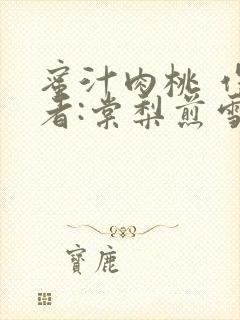 蜜汁肉桃 作
者:棠梨煎雪
寶鹿